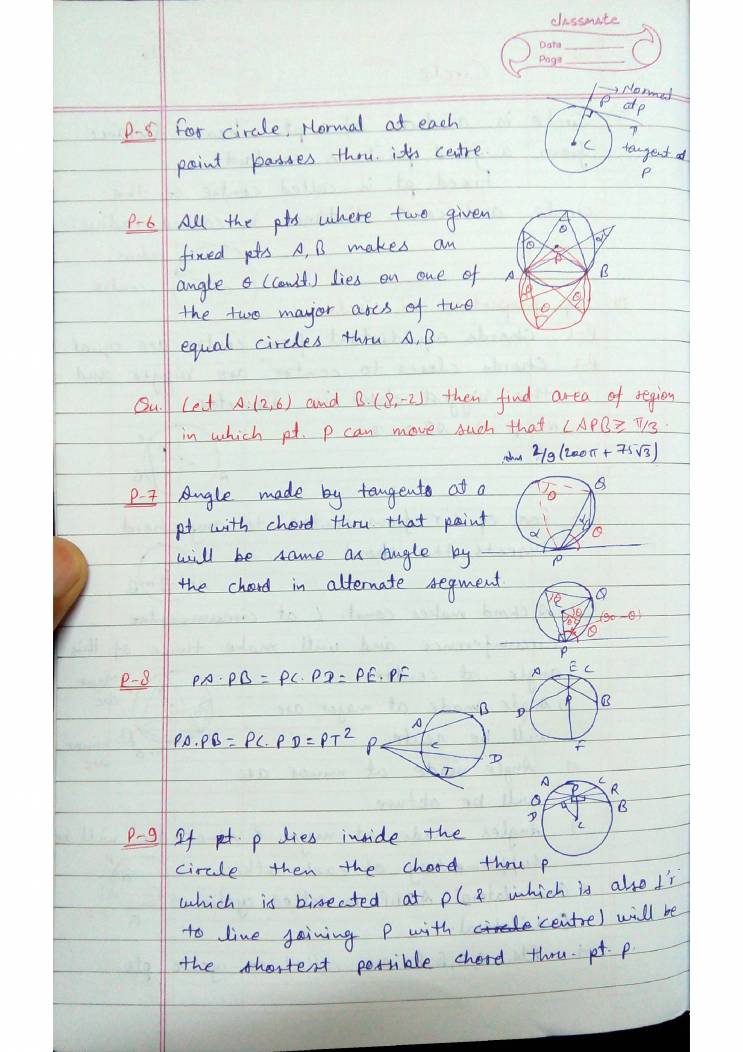 classmate
Date
Page
P-5 For circle, Normal at each
point passes thru. its centre
P
Normal
at P
C
tangent at
P
P-6 All the pts where two given
fixed pts A, B makes an
angle θ (const.) lies on one of
the two major arcs of two
equal circles thru A, B
θ
θ
A
B
θ
θ
Qu. Let A:(2,6) and B:(8,-2) then find area of region
in which pt. P can move such that ∠APB ≥ π/3.
Ans 2/9 (200π + 75√3)
P-7 Angle made by tangents at a
pt with chord thru that point
will be same as angle by
the chord in alternate segment.
θ
Q
α
θ
P
Q
(90-θ)
θ
P
P-8 PA.PB = PC.PD = PE.PF
A E C
P
D
B
F
PA.PB = PC.PD = PT²
P
A
B
C
D
T
A
P
C
Q
R
D
B
C
P-9 If pt. P lies inside the
circle then the chord thru P
which is bisected at P (& which is also ⊥'r
to line joining P with circle centre) will be
the shortest possible chord thru. pt. P.